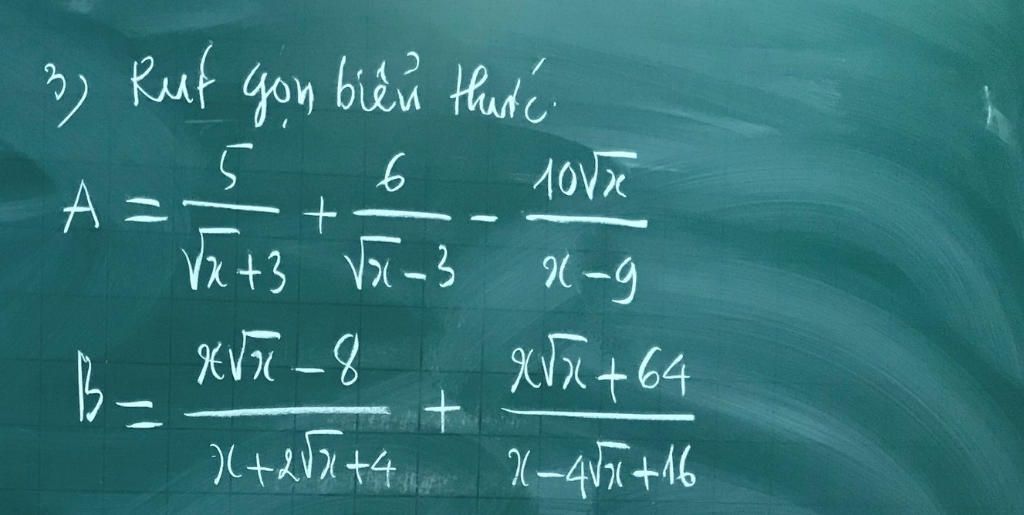 3) Rút gọn biểu thức.
A = 5/(√x+3) + 6/(√x-3) - 10√x/(x-9)
B = (x√x-8)/(x+2√x+4) + (x√x+64)/(x-4√x+16)